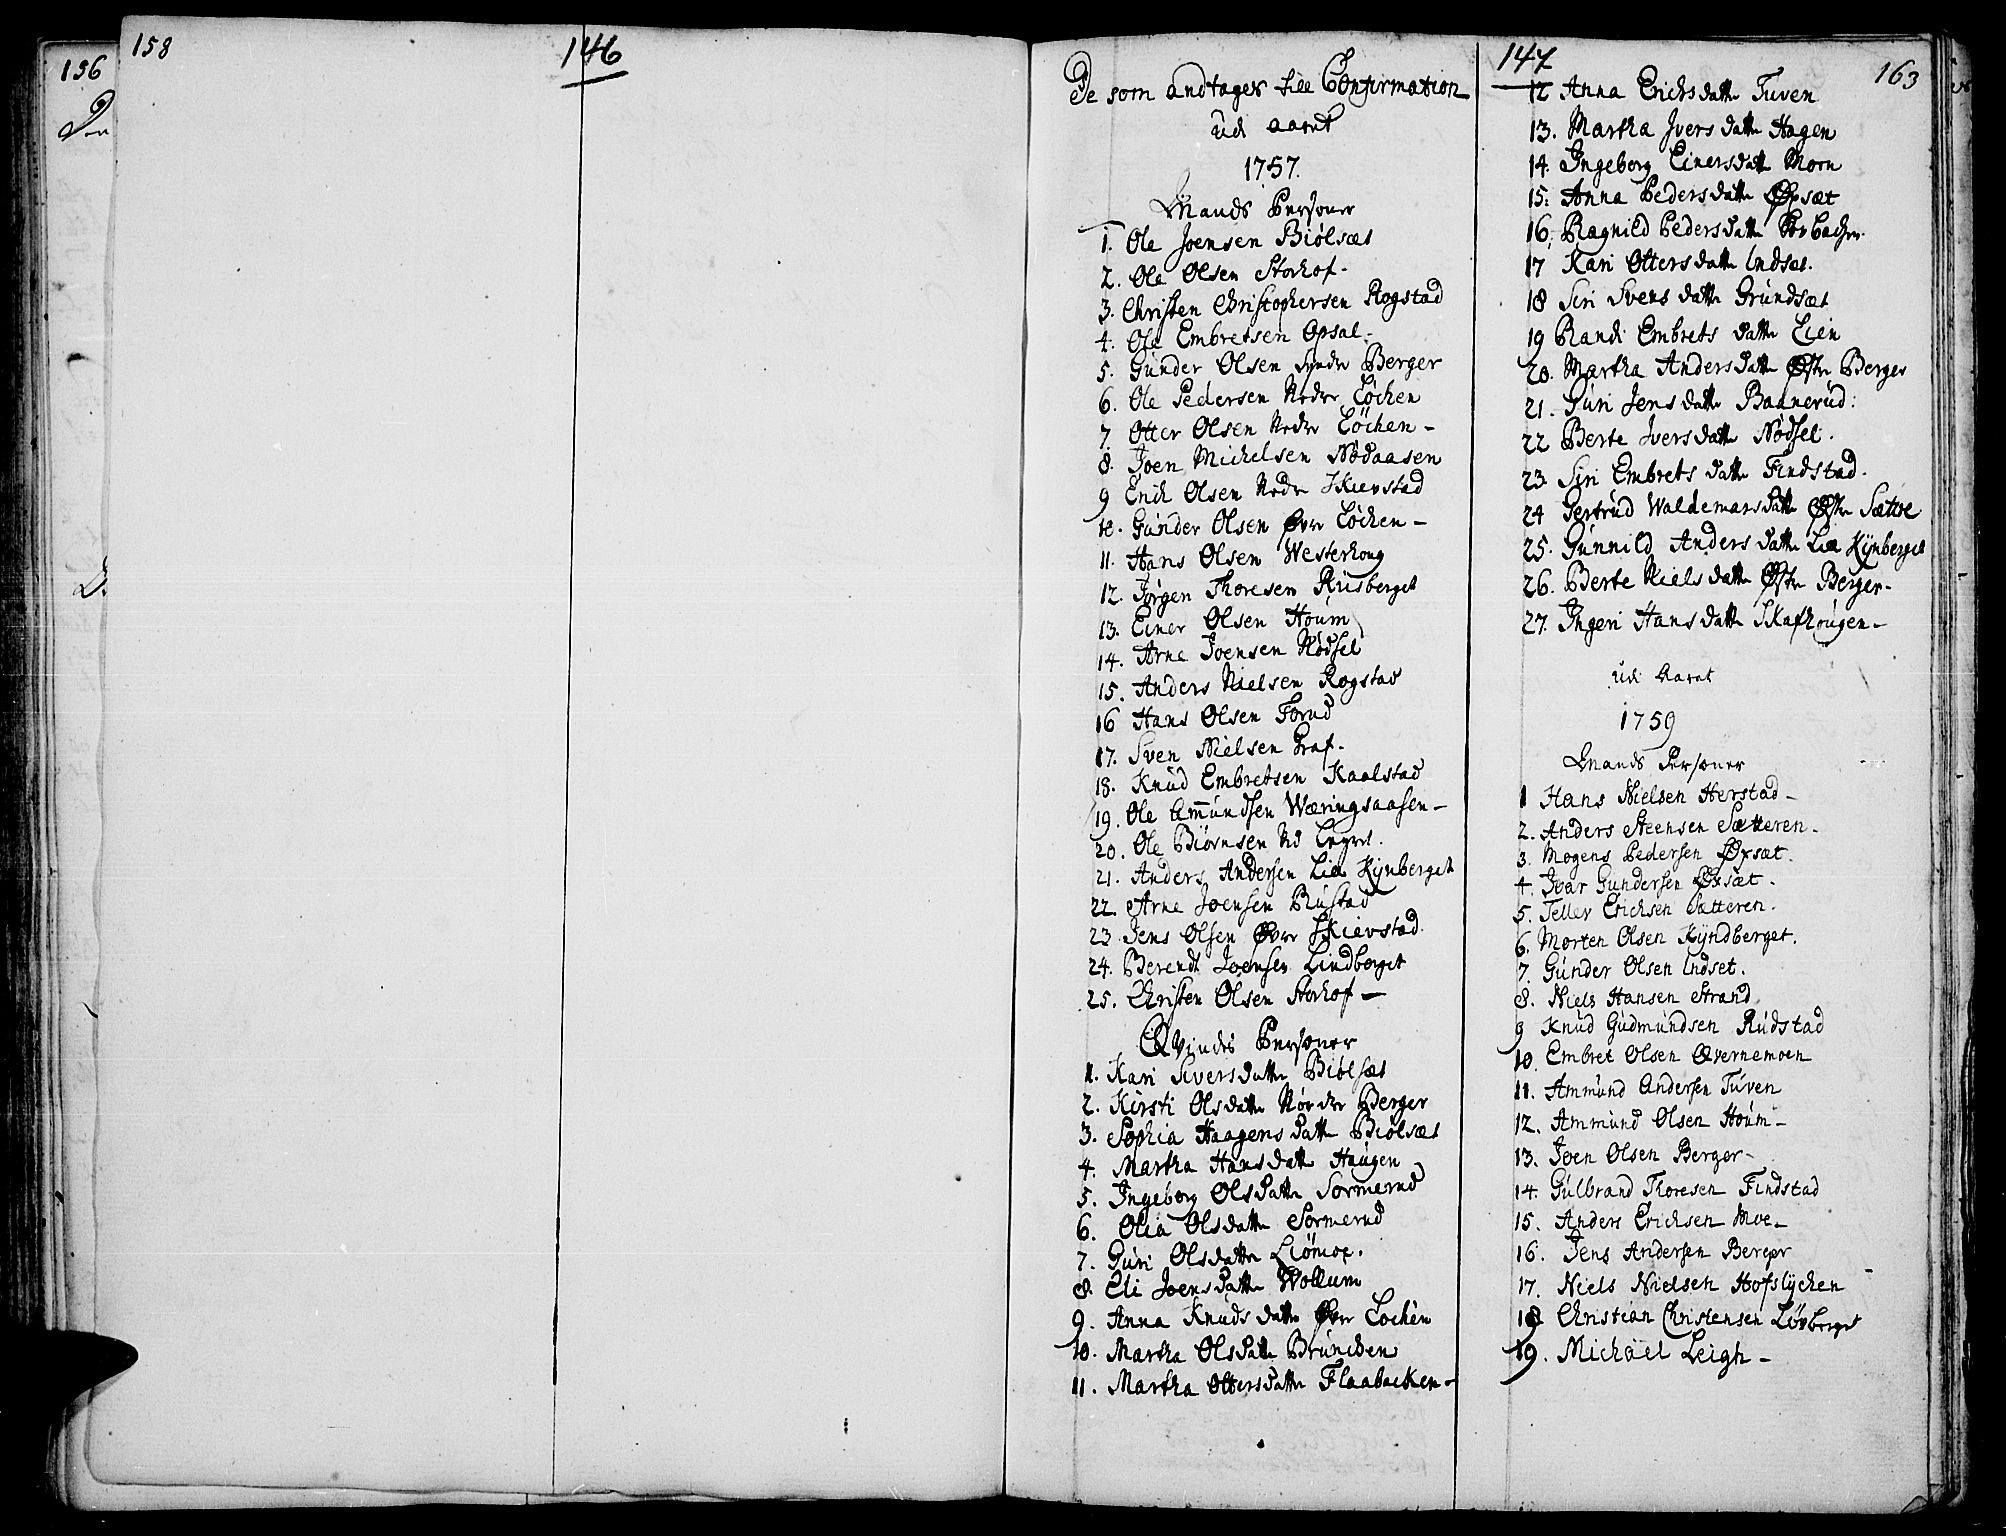 156
158
146
De som andtages till Confirmation
udi aaret
1757.
Mands Personer
1. Ole Joensen Biølsæt
2. Ole Olsen Storhof-
3. Christen Christophersen Rogstad
4. Ole Embretsen Opsal-
5. Gunder Olsen Syndr Berger
6. Ole Pedersen Nedre Løchen
7. Otter Olsen Nedre Løchen-
8. Joen Michelsen Nødaasen
9 Erich Olsen Nedr Skievstad
10. Gunder Olsen Øvre Løchen-
11. Hans Olsen Westerhoug
12. Jørgen Thoresen Riisberget
13. Einer Olsen Houm
14. Arne Joensen Nødsel
15. Anders Nielsen Rogstad
16 Hans Olsen Forud
17. Sven Nielsen Graf-
18. Knud Embretsen Kaalstad
19. Ole Amundsen Wæringsaasen-
20. Ole Biørnsen
21. Anders Andersen Lia Kynberget
22. Arne Joensen Rustad
23. Jens Olsen Øvre Skievstad
24. Berendt Joensen Lindberget
25. Christen Olsen Storhof-
Qvinds Personer
1. Kari Siversdatter Biølsæt
2. Kirsti Olsdatter Nørdre Berger
3. Sophia Haagensdatter Biølsæt
4. Martha Hansdatter Haugen
5. Ingeborg Olsdatter Sormerud
6. Olia Olsdatter Sormerud
7. Guri Olsdatter Liømoe.
8. Eli Joensdatter Wollum
9. Anna Knudsdatter Øvre Lochen
10. Martha Olsdatter Bruniden
11. Martha Ottersdatter Flaabacken-
147
163
12 Anna Erichsdatter Tuven
13. Martha Iversdatter Hagen
14. Ingeborg Einersdatter Morn
15: Anna Pedersdatter Øxsæt
16. Ragnild Pedersdatter
17 Kari Ottersdatter Indsæt.
18 Siri Svensdatter Grundsæt
19 Randi Embretsdatter Lien
20. Martha Andersdatter Østre Berger
21. Guri Jensdatter Baanerud:
22 Berte Iversdatter Nødsel.
23. Siri Embretsdatter Findstad.
24 Gertrud Waldemarsdatter Østre Sætre
25. Gunnild Andersdatter Lia Kynberget
26. Berte Nielsdatter Østre Berger-
27. Ingeri Hansdatter Skafhougen-
udi Aaret
1759
Mands Personer
1 Hans Nielsen Herstad-
2. Anders Steensen Sætteren-
3. Mogens Pedersen Øxsæt.
4. Ivar Gundersen Øxsæt.
5. Tellev Erichsen Sætteren.
6. Morten Olsen Kyndberget.
7. Gunder Olsen Indset.
8. Niels Hansen Strand
9 Knud Gudmundsen Rudstad
10. Embret Olsen Øvernemoen
11. Ammund Andersen Tuven
12. Ammund Olsen Houm-
13. Joen Olsen Berger-
14. Gulbrand Thoresen Findstad
15. Anders Erichsen Moe-
16. Jens Andersen Berger
17. Niels Nielsen Hofslychen
18 Christian Christensen Løvberget
19. Michael Leigh-